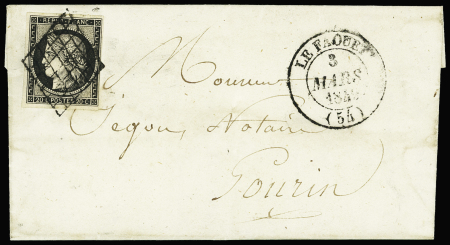 REPUB. FRANC.
20 c. POSTES 20 c.
LE FAOUET
3
MARS
(54)
Monsieur
Segon, Notaire
Gourin